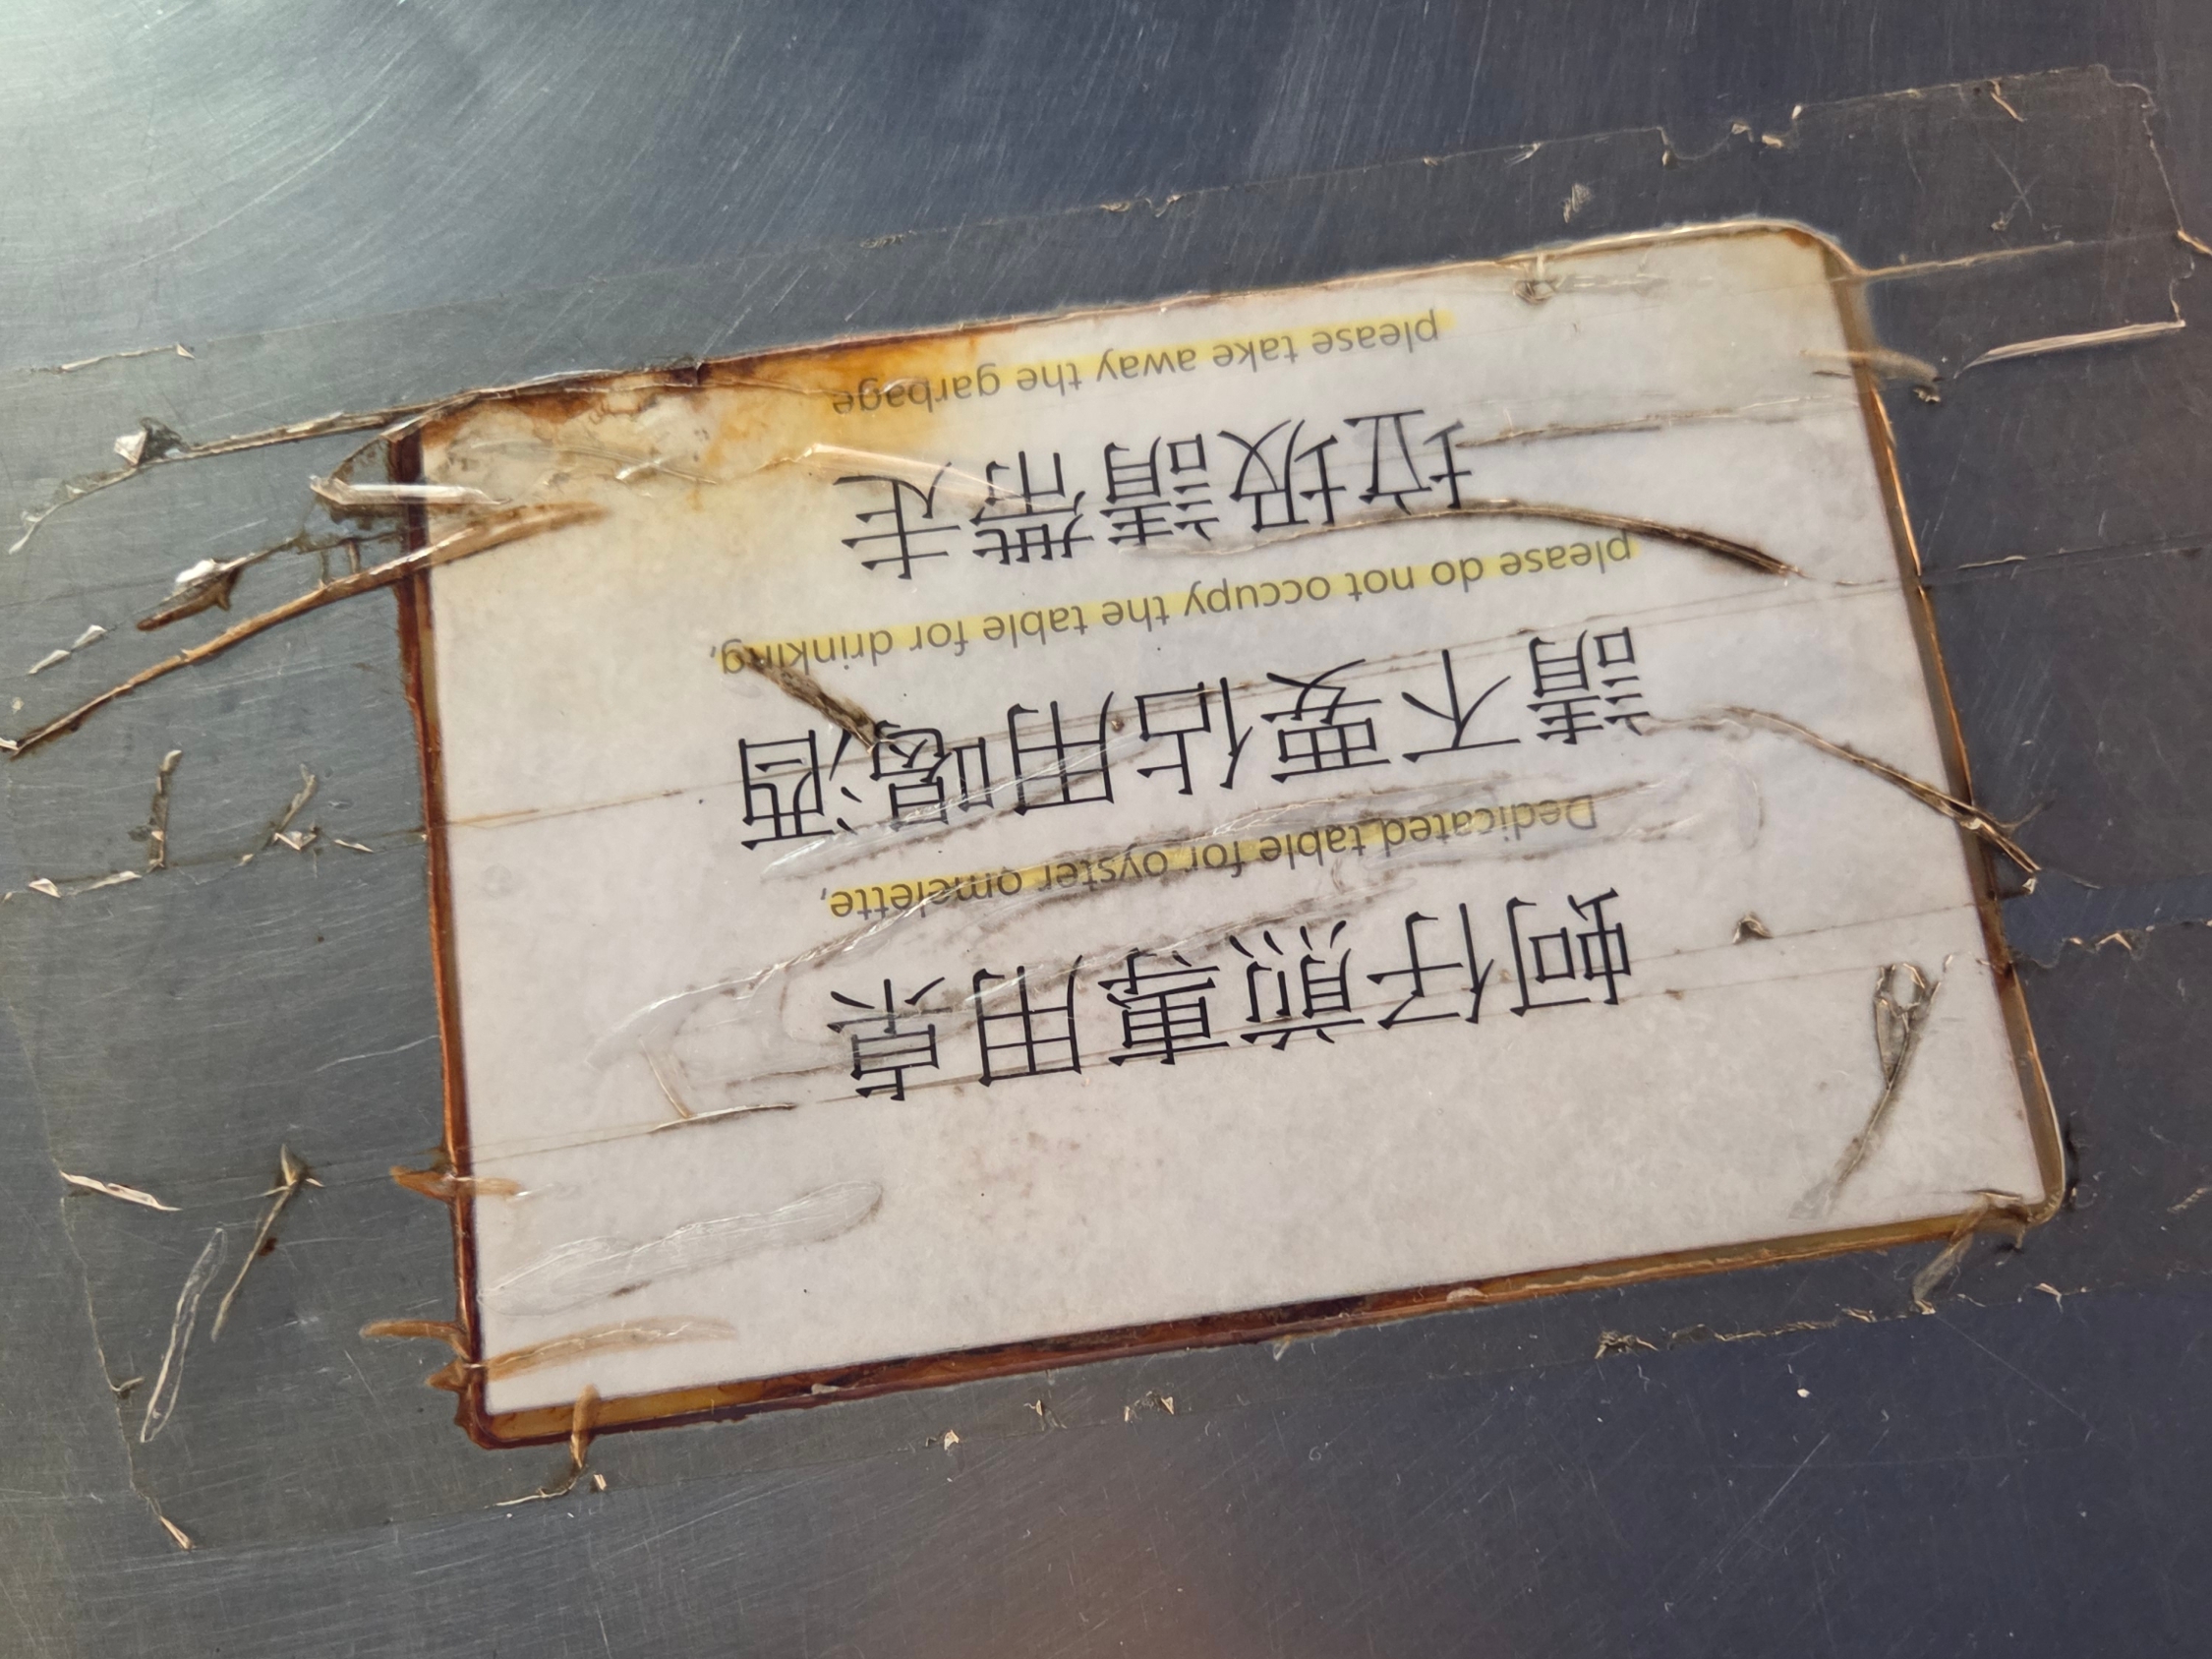 蚵仔煎專用桌
Dedicated table for oyster omelette,
請不要佔用喝酒
please do not occupy the table for drinking,
垃圾請帶走
please take away the garbage